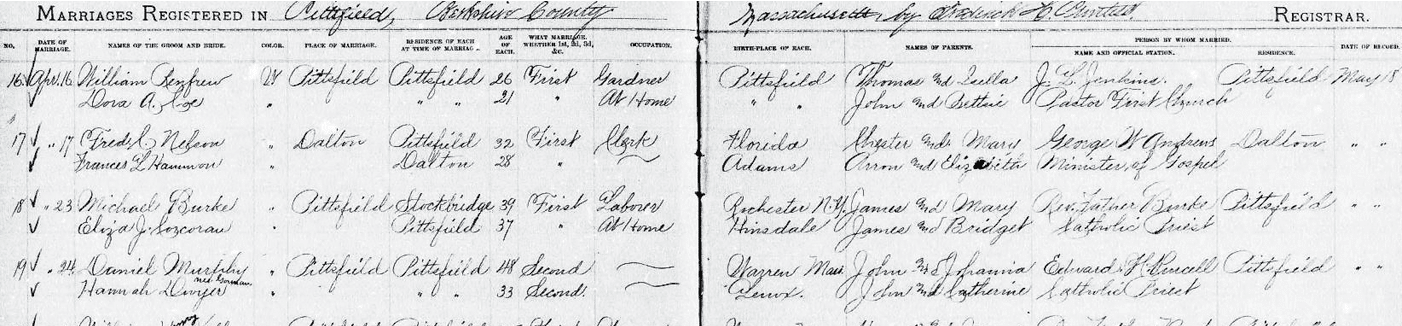 MARRIAGES REGISTERED IN Pittsfield, Berkshire County Massachusetts, by H. REGISTRAR.
NO. DATE OF MARRIAGE. NAMES OF THE GROOM AND BRIDE. COLOR. PLACE OF MARRIAGE. RESIDENCE OF EACH AT TIME OF MARRIAGE. AGE OF EACH. WHAT MARRIAGE, WHETHER 1st, 2d, 3d, &c. OCCUPATION. BIRTH-PLACE OF EACH. NAMES OF PARENTS. PERSON BY WHOM MARRIED. NAME AND OFFICIAL STATION. RESIDENCE. DATE OF RECORD.
16 Apr. 16 William Renfrew W Pittsfield Pittsfield 26 First Gardner Pittsfield Thomas and J. L. Jenkins. Pittsfield May 18
Dora A. " " " 21 " At Home " " John and Bettie Pastor First Church
17 " 17 Fred C. Nelson " Dalton Pittsfield 32 First Clerk Florida Chester and Mary George W Andrews Dalton " "
Frances L Hammon " Dalton 28 " Adams Arron and Elizabeth Minister of Gospel
18 " 23 Michael Burke " Pittsfield Stockbridge 39 First Laborer Rochester N.Y. James and Mary Rev. Father Burke Pittsfield " "
Eliza J. " Pittsfield 37 " At Home Hinsdale James and Bridget Catholic Priest
19 " 24 Daniel Murphy " Pittsfield Pittsfield 48 Second Warren Mass John and Johanna Edward H. Purcell Pittsfield " "
Hannah Dwyer " " " 33 Second. Lenox. John and Catherine Catholic Priest